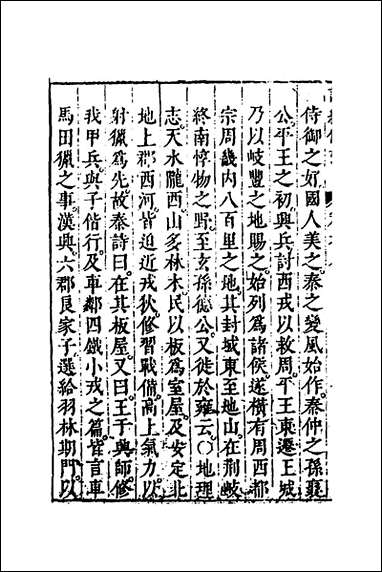 侍御之好國人美之秦之變風始作秦仲之孫襄
公平王之初興兵討西戎以救周平王東遷王城
乃以岐豐之地賜之始列為諸侯遂橫有周西都
宗周畿內八百里之地其封域東至迆山在荊岐
終南惇物之野至玄孫德公又徙於雍云〇地理
志天水隴西山多林木民以板為室屋及安定北
地上郡西河皆迫近戎狄修習戰備高上氣力以
射獵為先故秦詩曰在其板屋又曰王于興師修
我甲兵與子偕行及車鄰四鐵小戎之篇皆言車
馬田獵之事漢興六郡良家子選給羽林期門以